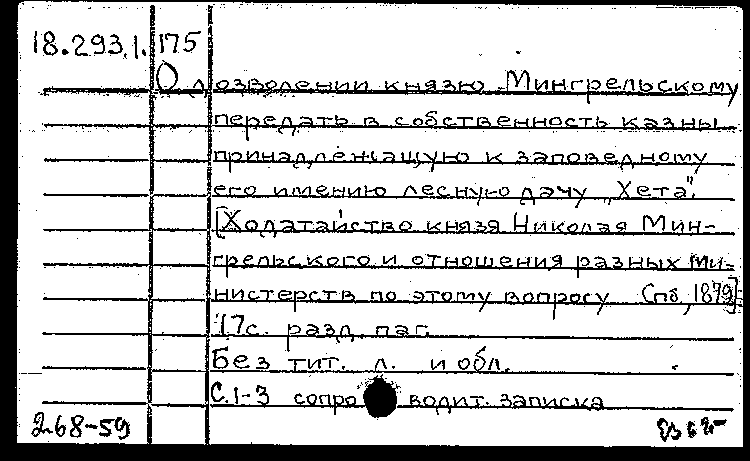 18.293.1.175
О дозволении князю Мингрельскому
передать в собственность казны
принадлежащую к заповедному
его имению лесную дачу „Хета".
[Ходатайство князя Николая Мин-
грельского и отношения разных Ми-
нистерств по этому вопросу Спб, 1879]
17 с. разд. паг.
Без тит. л. и обл.
С. 1-3 сопроводит. записка
268-59